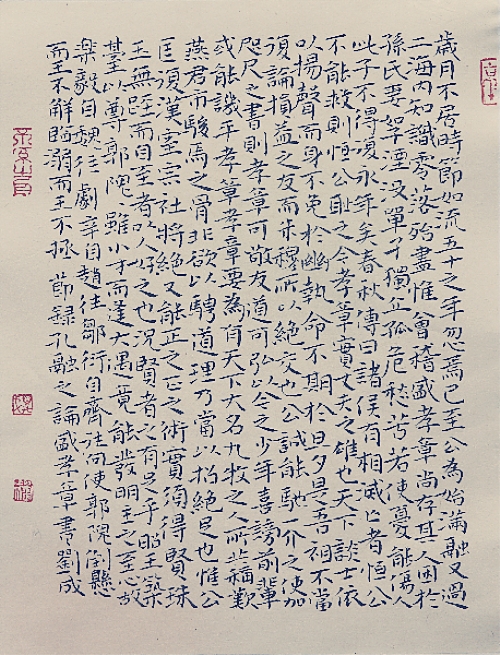 歲月不居時節如流五十之年忽焉已至公為始滿融又過
二海內知識零落殆盡惟會稽盛孝章尚存其人困於
孫氏妻孥湮沒單孑獨立孤危愁苦若使憂能傷人
此子不得復永年矣春秋傳曰諸侯有相滅亡者恒公
不能救則恒公恥之今孝章實丈夫之雄也天下談士依
以揚聲而身不免於幽執命不期於旦夕是吾祖不當
復論損益之友而朱穆所以絕交也公誠能馳一介之使加
咫尺之書則孝章可致友道可弘以今之少年喜謗前輩
或能譏平孝章孝章要為有天下大名九牧之人所共稱歎
燕君市駿馬之骨非欲以騁道理乃當以招絕足也惟公
匡復漢室宗社將絕又能正之正之術實須得賢珠
玉無脛而自至者以人好之也況賢者之有足乎昭王築
臺以尊郭隗隗雖小才而逢大遇竟能發明主之至心故
樂毅自魏往劇辛自趙往鄒衍自齊往向使郭隗倒懸
而王不解臨溺而王不拯 節錄孔融之論盛孝章書劉成